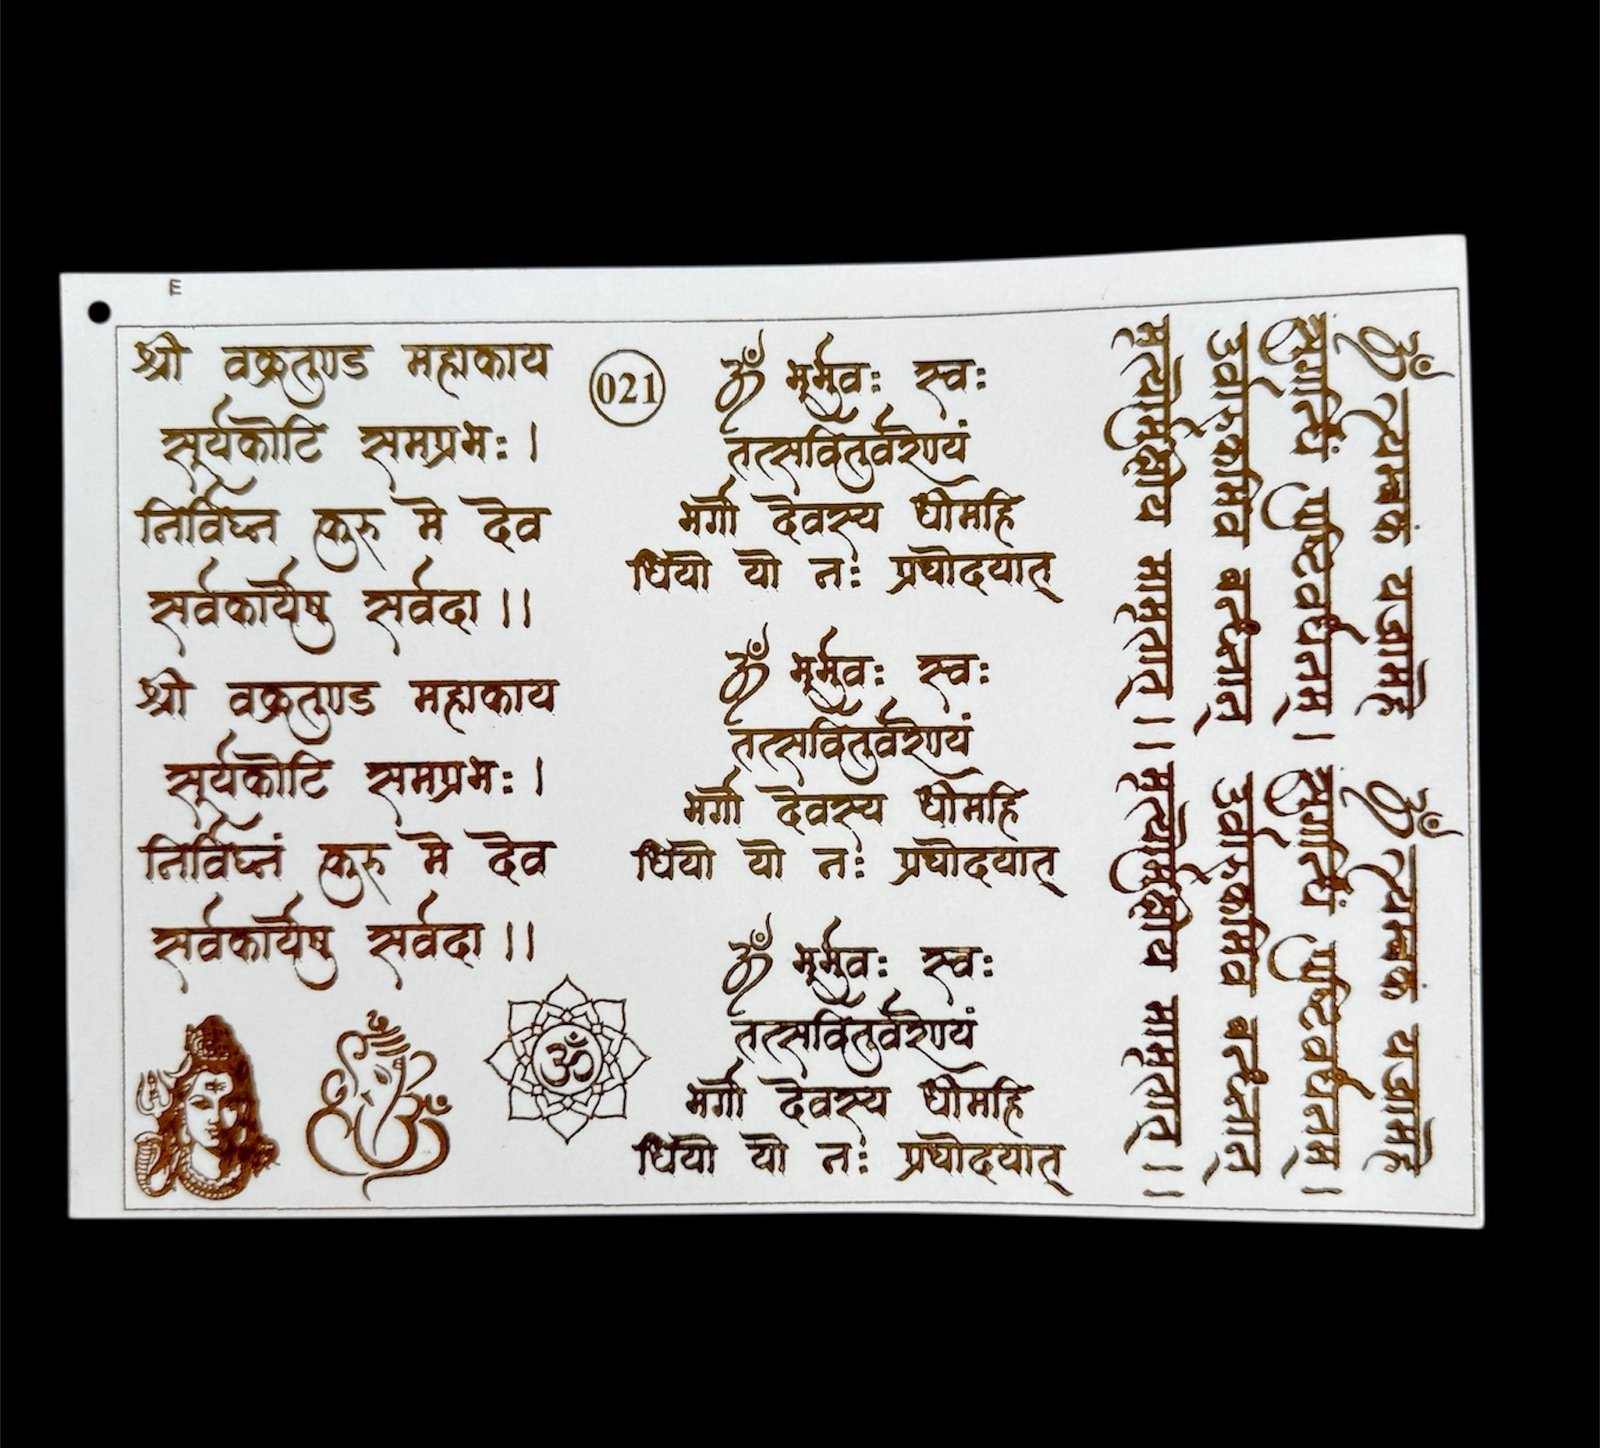 श्री वक्रतुण्ड महाकाय
सूर्यकोटि समप्रभः।
निर्विघ्न कुरु मे देव
सर्वकार्येषु सर्वदा।।
श्री वक्रतुण्ड महाकाय
सूर्यकोटि समप्रभः।
निर्विघ्नं कुरु मे देव
सर्वकार्येषु सर्वदा।।
ॐ
021
ॐ भूर्भुवः स्वः
तत्सवितुर्वरेण्यं
भर्गो देवस्य धीमहि
धियो यो नः प्रचोदयात्
ॐ भूर्भुवः स्वः
तत्सवितुर्वरेण्यं
भर्गो देवस्य धीमहि
धियो यो नः प्रचोदयात्
ॐ भूर्भुवः स्वः
तत्सवितुर्वरेण्यं
भर्गो देवस्य धीमहि
धियो यो नः प्रचोदयात्
ॐ त्र्यम्बकं यजामहे
सुगन्धिं पुष्टिवर्धनम्।
उर्वारुकमिव बन्धनान्
मृत्योर्मुक्षीय मामृतात्।।
ॐ त्र्यम्बकं यजामहे
सुगन्धिं पुष्टिवर्धनम्।
उर्वारुकमिव बन्धनान्
मृत्योर्मुक्षीय मामृतात्।।